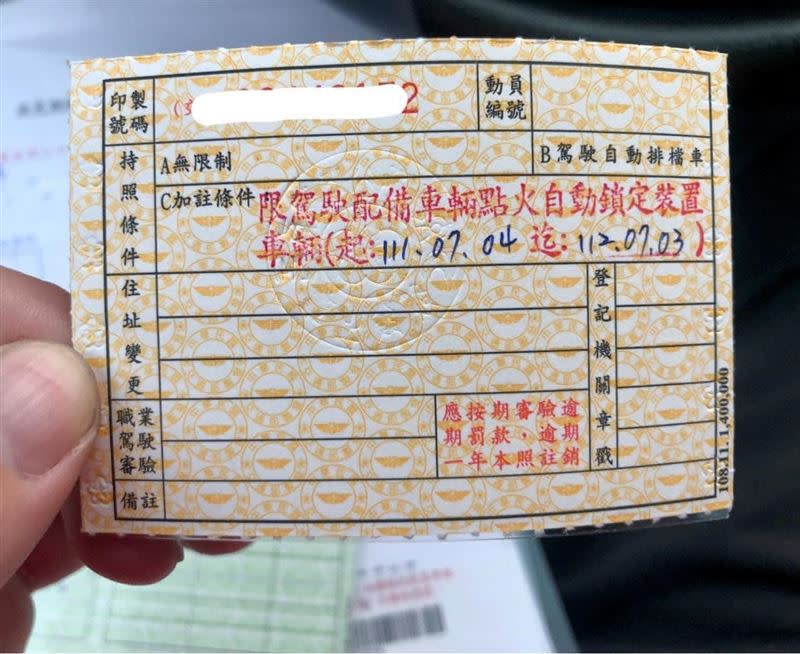 印製
號碼
動員
編號
持照條件
A無限制
B駕駛自動排檔車
C加註條件
限駕駛配備車輛點火自動鎖定裝置
車輛(起:111.07.04 迄:112.07.03)
住址變更
登記機關章戳
職業
駕駛
審驗
應按期審驗逾
期罰款,逾期
一年本照註銷
備註
108.11.1,400,000